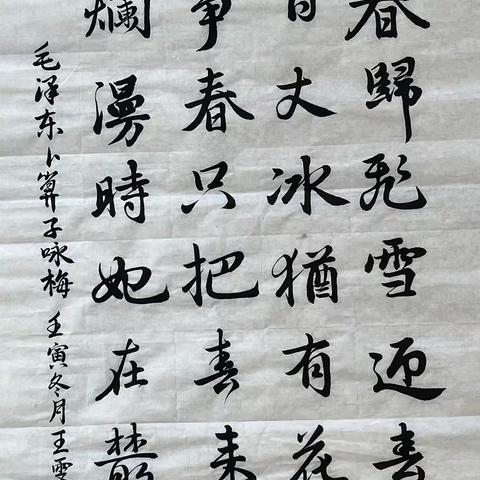 春歸飛雪迎春
百丈冰猶有花
争春只把春来
爛漫時她在叢
毛泽东卜算子咏梅 壬寅冬月 王